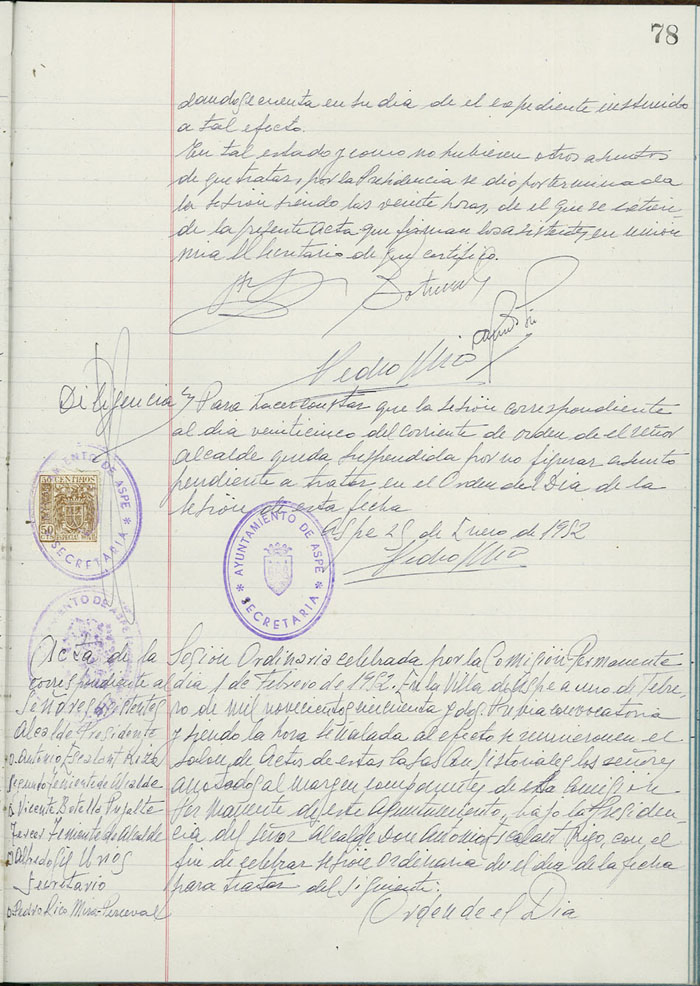 78
dandose cuenta en su dia de el expediente instruido
a tal efecto.
En tal estado y como no hubiesen otros asuntos
de que tratar, por la Presidencia se dio por terminada
la sesion siendo las veinte horas, de el que se extien-
de la presente acta que firman los asistentes en union
mia El Secretario de que certifico.
Pedro Rico
Diligencia
Para hacer constar que la sesion correspondiente
al dia veinticinco del corriente de orden de el señor
Alcalde queda suspendida por no figurar asunto
pendiente a tratar en el Orden del Dia de la
sesion de esta fecha
Aspe 25 de Enero de 1952
Pedro Rico
50 CENTIMOS
50
AYUNTAMIENTO DE ASPE
SECRETARIA
AYUNTAMIENTO DE ASPE
* SECRETARIA *
AYUNTAMIENTO DE ASPE
Acta de la Sesion Ordinaria celebrada por la Comision Permanente
correspondiente al dia 1 de Febrero de 1952. En la Villa de Aspe a uno de Febre-
ro de mil novecientos cincuenta y dos. Previa convocatoria
y siendo la hora señalada al efecto se reunieron en el
Salon de Actos de estas Casas Consistoriales los señores
anotados al margen componentes de esta Comision
Permanente de este Ayuntamiento, bajo la Presiden-
cia del Señor Alcalde Don Antonio Escalant Rizo, con el
fin de celebrar sesion Ordenaria de el dia de la fecha
para tratar del siguiente:
Orden de el Dia
Señores
Alcalde Presidente
D Antonio Escalant Rizo
Segundo Teniente de Alcalde
D Vicente Botella Pujalte
Tercer Teniente de Alcalde
D Alfredo
Secretario
D Pedro Rico Mira-Perceval